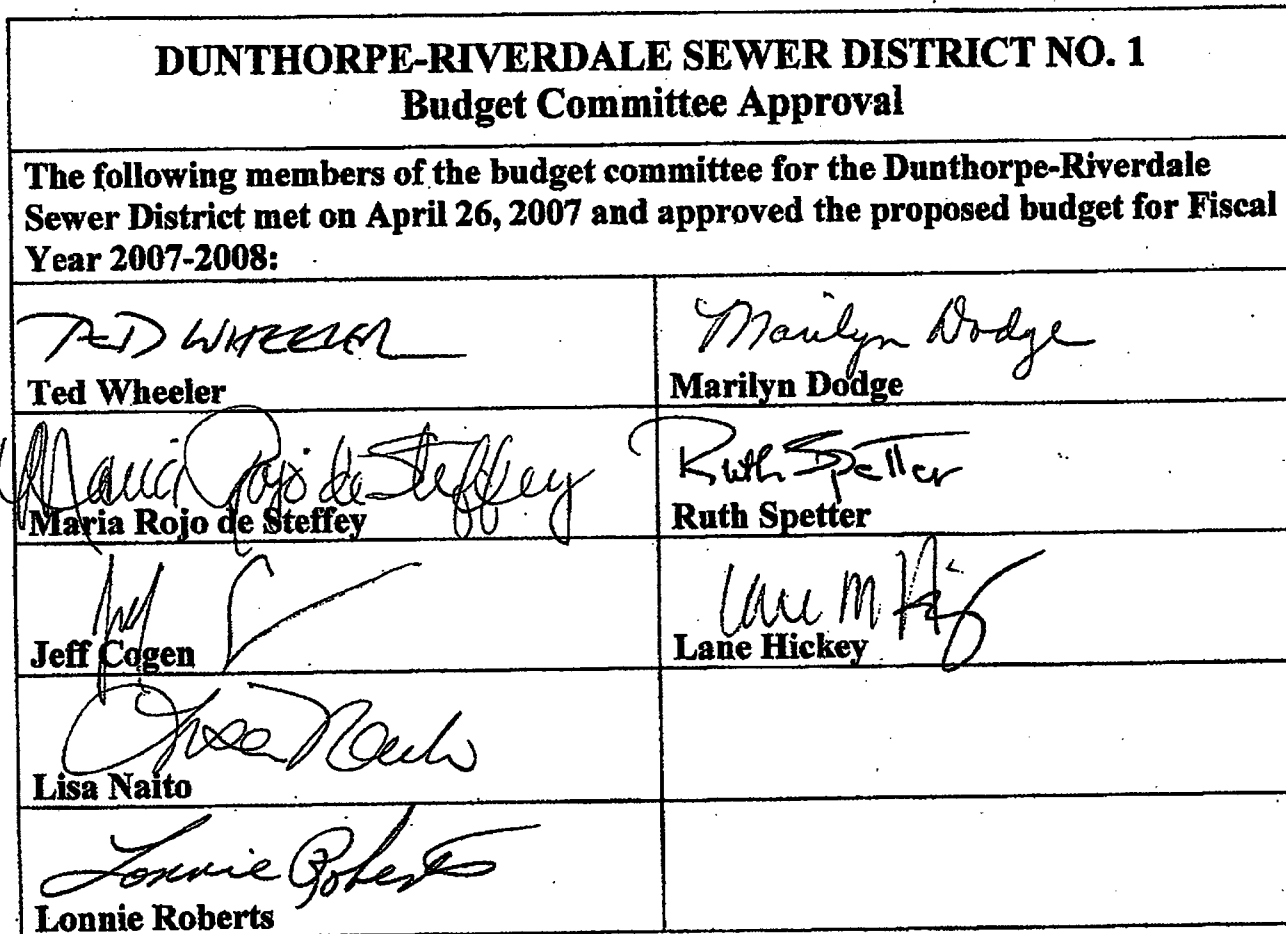 DUNTHORPE-RIVERDALE SEWER DISTRICT NO. 1
Budget Committee Approval
The following members of the budget committee for the Dunthorpe-Riverdale
Sewer District met on April 26, 2007 and approved the proposed budget for Fiscal
Year 2007-2008:
TED WHEELER
Ted Wheeler
Marilyn Dodge
Marilyn Dodge
Maria Rojo de Steffey
Maria Rojo de Steffey
Ruth Spetter
Ruth Spetter
Jeff Cogen
Lane M
Lane Hickey
Lisa Naito
Lisa Naito
Lonnie Roberts
Lonnie Roberts